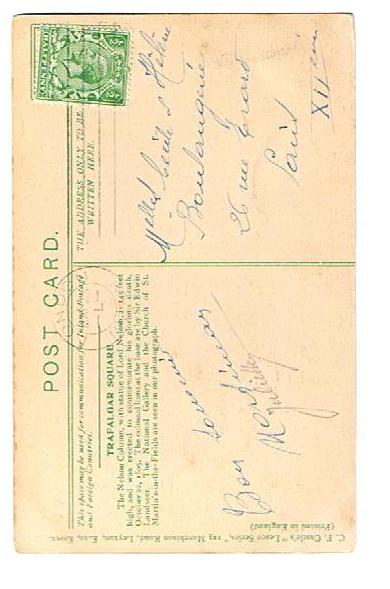 POST CARD.
This space may be used for communication for Inland Postage
and Foreign Countries.
THE ADDRESS ONLY TO BE
WRITTEN HERE.
TRAFALGAR SQUARE
The Nelson Column, with statue of Lord Nelson, is 145 feet
high, and was erected to commemorate his glorious death,
October 21, 1805. The colossal lions at the base are by Sir Edwin
Landseer. The National Gallery and the Church of St.
Martin's-in-the-Fields are seen in our photograph.
Bon souvenir
Mathilde
Melles Cécile & Hélène
Boulangerie
26 rue
Paris
XII
C. F. Castle's "Lesco Series," 125 Murchison Road, Leyton, E.10, Essex.
(Printed in England)